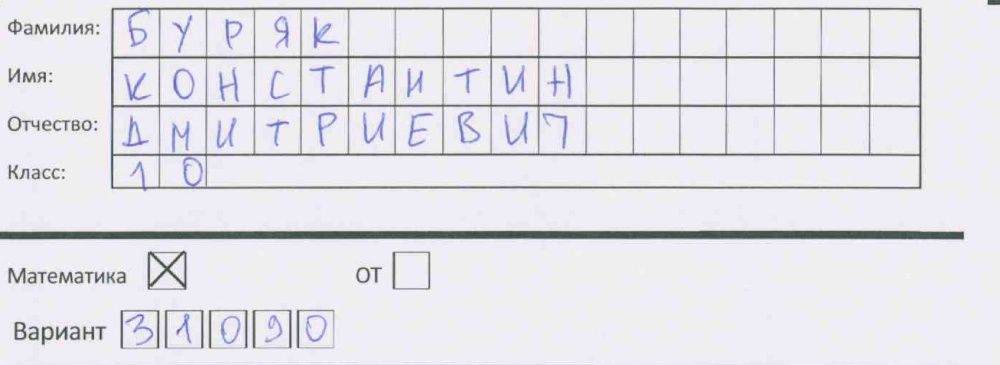 Фамилия: БУРЯК
Имя: КОНСТАНТИН
Отчество: ДМИТРИЕВИЧ
Класс: 10
Математика ☒ ОТ ☐
Вариант 31090